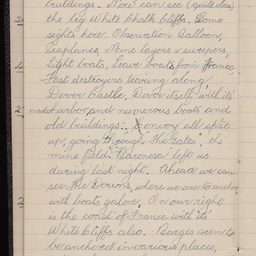 buildings. Now can see (quite close)
the big White Chalk Cliffs. Some
sights here. Observation Balloon,
Seaplanes, Mine layers & sweepers,
Light boats, Leave boats from France,
Fast destroyers tearing along
Dover Castle. Dover itself with its'
made harbor, and numerous boats and
old buildings. Convoy all split
up, going through "The Gates", the
mine field. Baronesa left us
during last night. Ahead we can
see The Downs, where we are to anchor
with boats galore. On our right
is the coast of France with its'
White Cliffs also. Barges seem to
be anchored in various places,